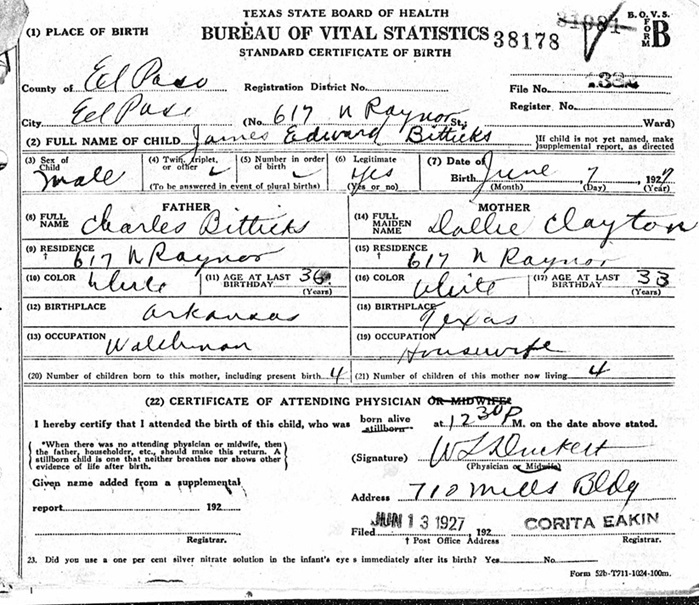 TEXAS STATE BOARD OF HEALTH
B. O. V. S.
FORM B
(1) PLACE OF BIRTH
BUREAU OF VITAL STATISTICS 38178
STANDARD CERTIFICATE OF BIRTH
County of El Paso Registration District No. File No.
City El Paso (No. 617 N Raynor St., Register No. Ward)
(2) FULL NAME OF CHILD James Edward Bitticks
If child is not yet named, make supplemental report, as directed
(3) Sex of Child Male (4) Twin, triplet, or other (5) Number in order of birth (6) Legitimate Yes (Yes or no) (7) Date of Birth June 7 1927
(To be answered in event of plural births) (Month) (Day) (Year)
FATHER
(8) FULL NAME Charles Bitticks
(9) RESIDENCE † 617 N Raynor
(10) COLOR White (11) AGE AT LAST BIRTHDAY 36 (Years)
(12) BIRTHPLACE Arkansas
(13) OCCUPATION Watchman
MOTHER
(14) FULL MAIDEN NAME Dollie Clayton
(15) RESIDENCE † 617 N Raynor
(16) COLOR White (17) AGE AT LAST BIRTHDAY 33 (Years)
(18) BIRTHPLACE Texas
(19) OCCUPATION Housewife
(20) Number of children born to this mother, including present birth 4 (21) Number of children of this mother now living 4
(22) CERTIFICATE OF ATTENDING PHYSICIAN OR MIDWIFE*
I hereby certify that I attended the birth of this child, who was born alive stillborn at 12 30 P M. on the date above stated.
*When there was no attending physician or midwife, then
the father, householder, etc., should make this return. A
stillborn child is one that neither breathes nor shows other
evidence of life after birth.
(Signature) W L Duckett
(Physician or Midwife)
Given name added from a supplemental
Address 710 Mills Bldg
report 192
Filed JUN 13 1927, 192 CORITA EAKIN
Registrar. † Post Office Address Registrar.
23. Did you use a one per cent silver nitrate solution in the infant's eyes immediately after its birth? Yes No
Form 52b-T711-1024-100m.